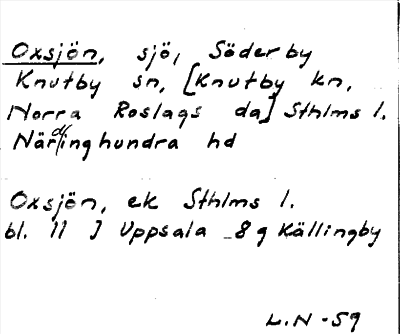 Oxsjön, sjö, Söderby
Knutby sn, [Knutby kn,
Norra Roslags da] Sthlms l.
Närdinghundra hd
Oxsjön, ek Sthlms l.
bl. 11 J Uppsala 8 g Källingby
L.N - 59